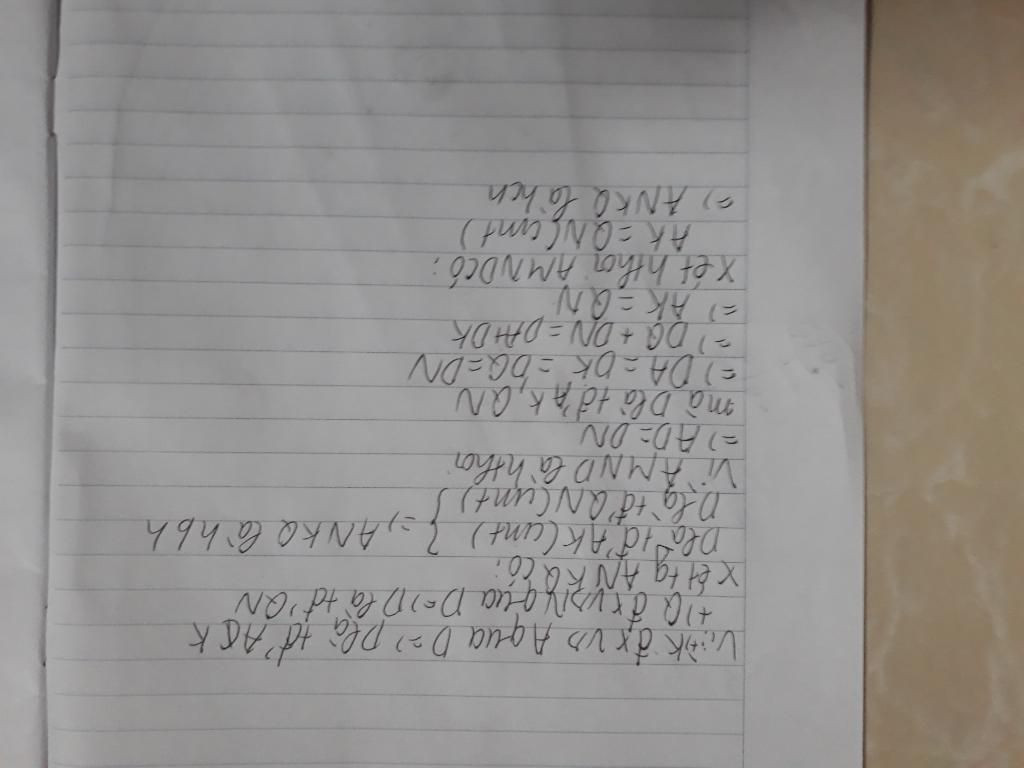 Vì +) K đx vs A qua D => D là tđ' AK
+) Q đx vs N qua D => D là tđ' QN
xét tg ANKQ có:
D là tđ' AK (cmt)
D là tđ' QN (cmt) } => ANKQ là hbh
Vì AMND là hthoi
=> AD = DN
mà D là tđ' AK, QN
=> DA = DK = DQ = DN
=> DQ + DN = DA + DK
=> AK = QN
xét hthoi AMND có:
AK = QN (cmt)
=> ANKQ là hcn